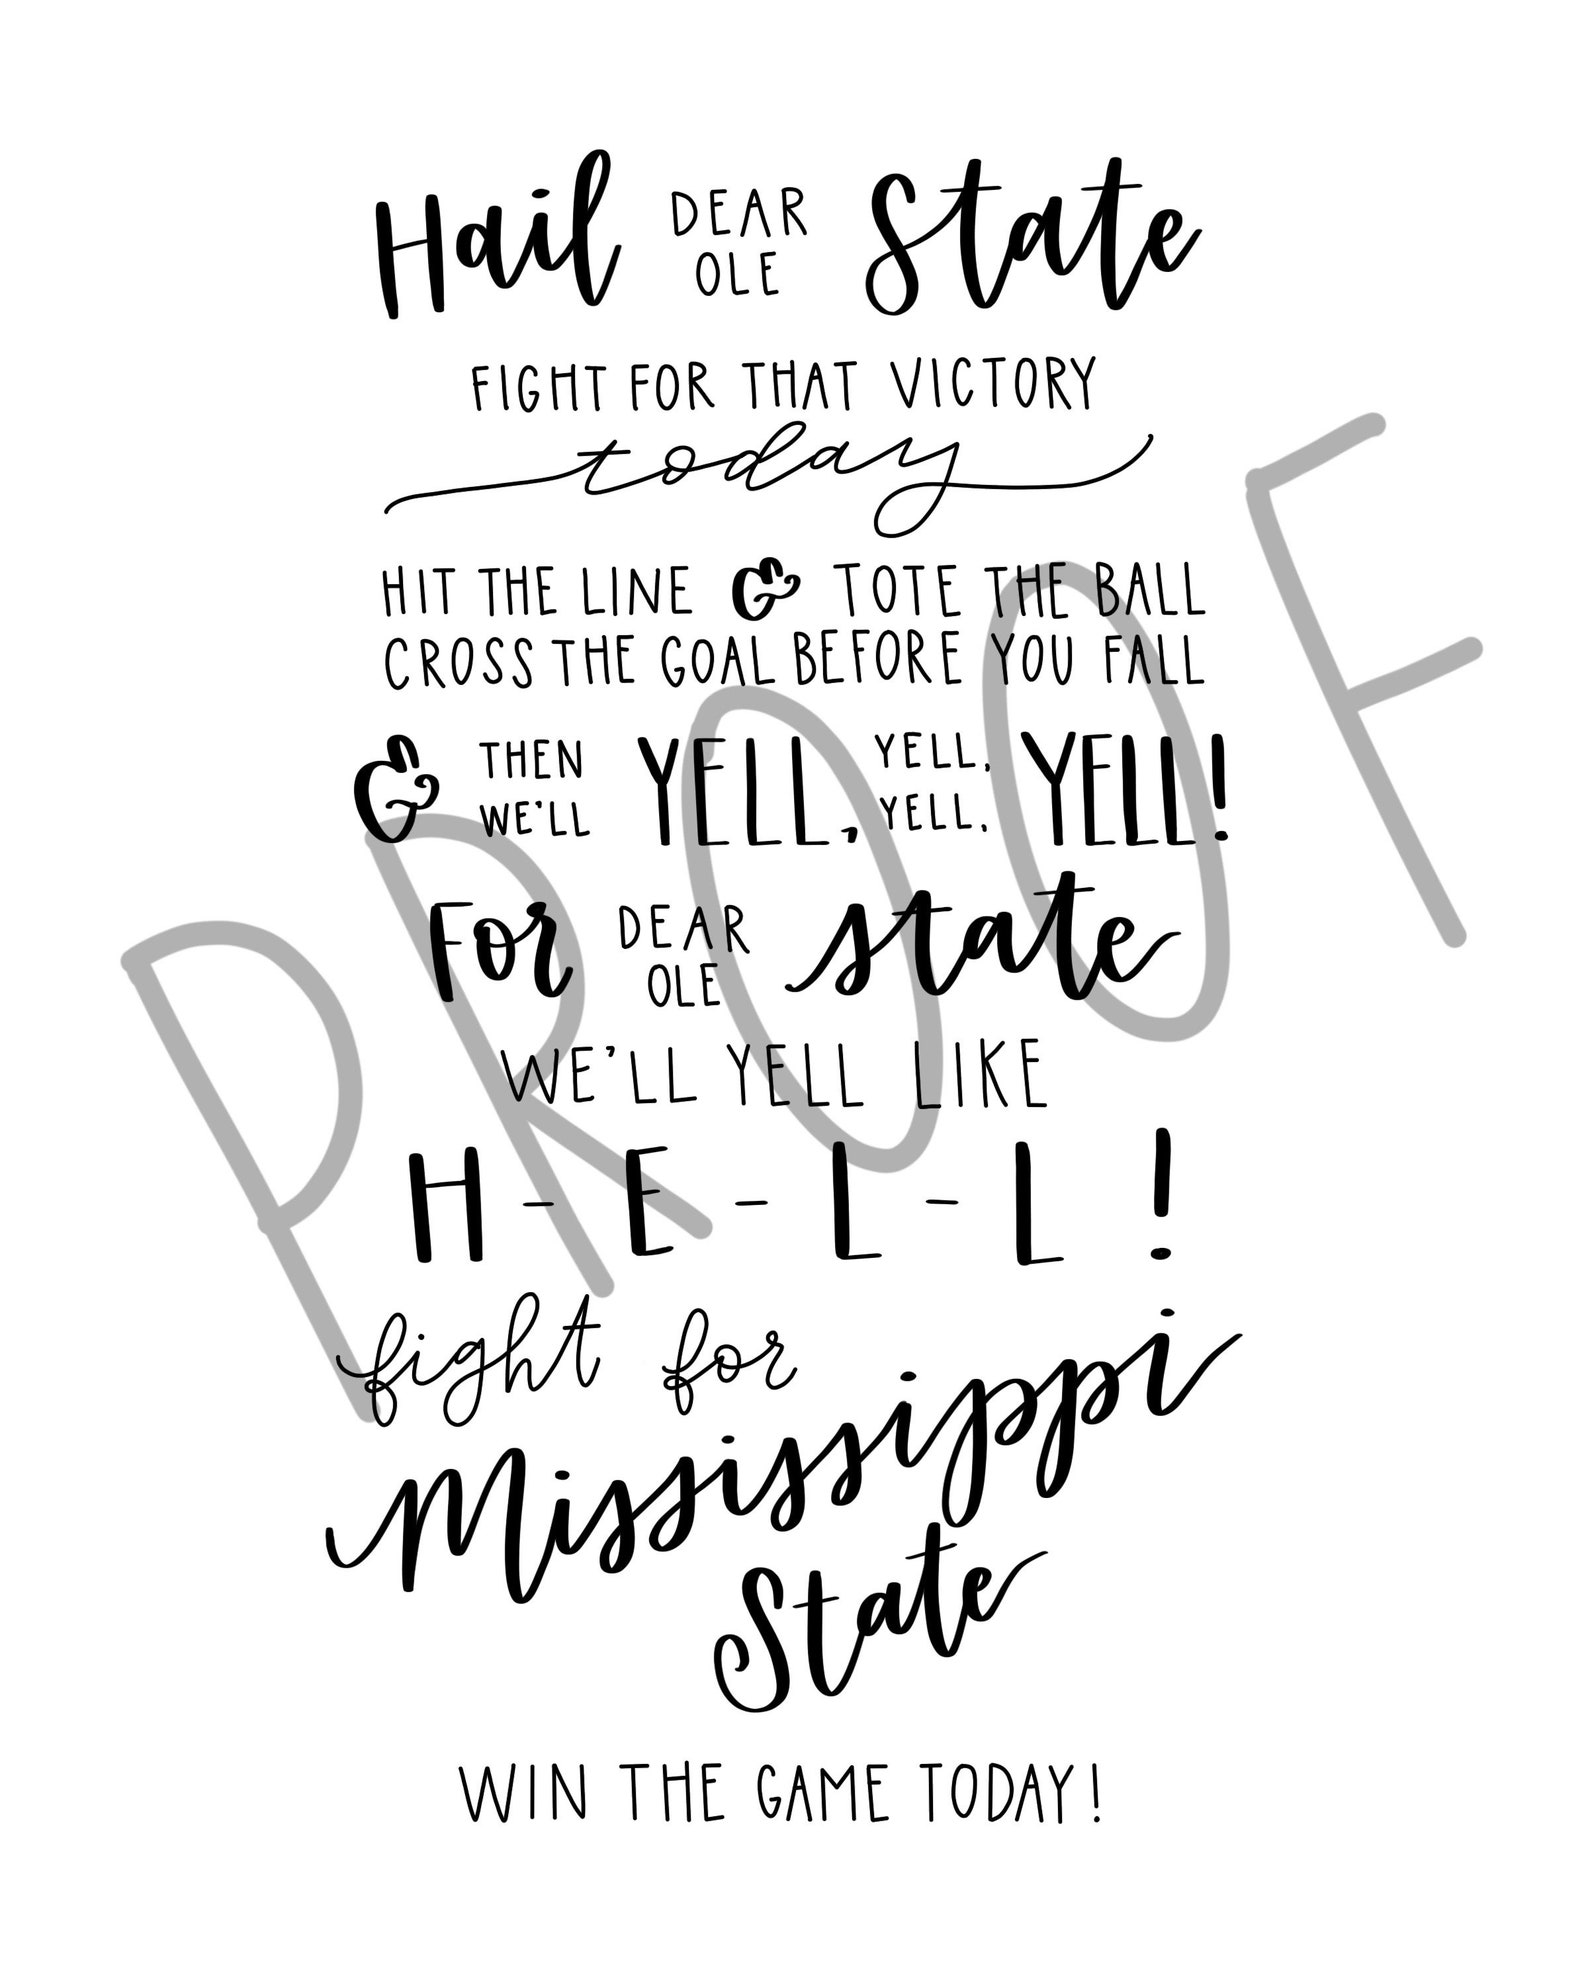 Hail DEAR OLE State
FIGHT FOR THAT VICTORY
today
HIT THE LINE & TOTE THE BALL
CROSS THE GOAL BEFORE YOU FALL
& THEN WE'LL YELL, YELL, YELL, YELL!
For DEAR OLE state
WE'LL YELL LIKE
H-E-L-L!
fight for
Mississippi
State
WIN THE GAME TODAY!
PROOF